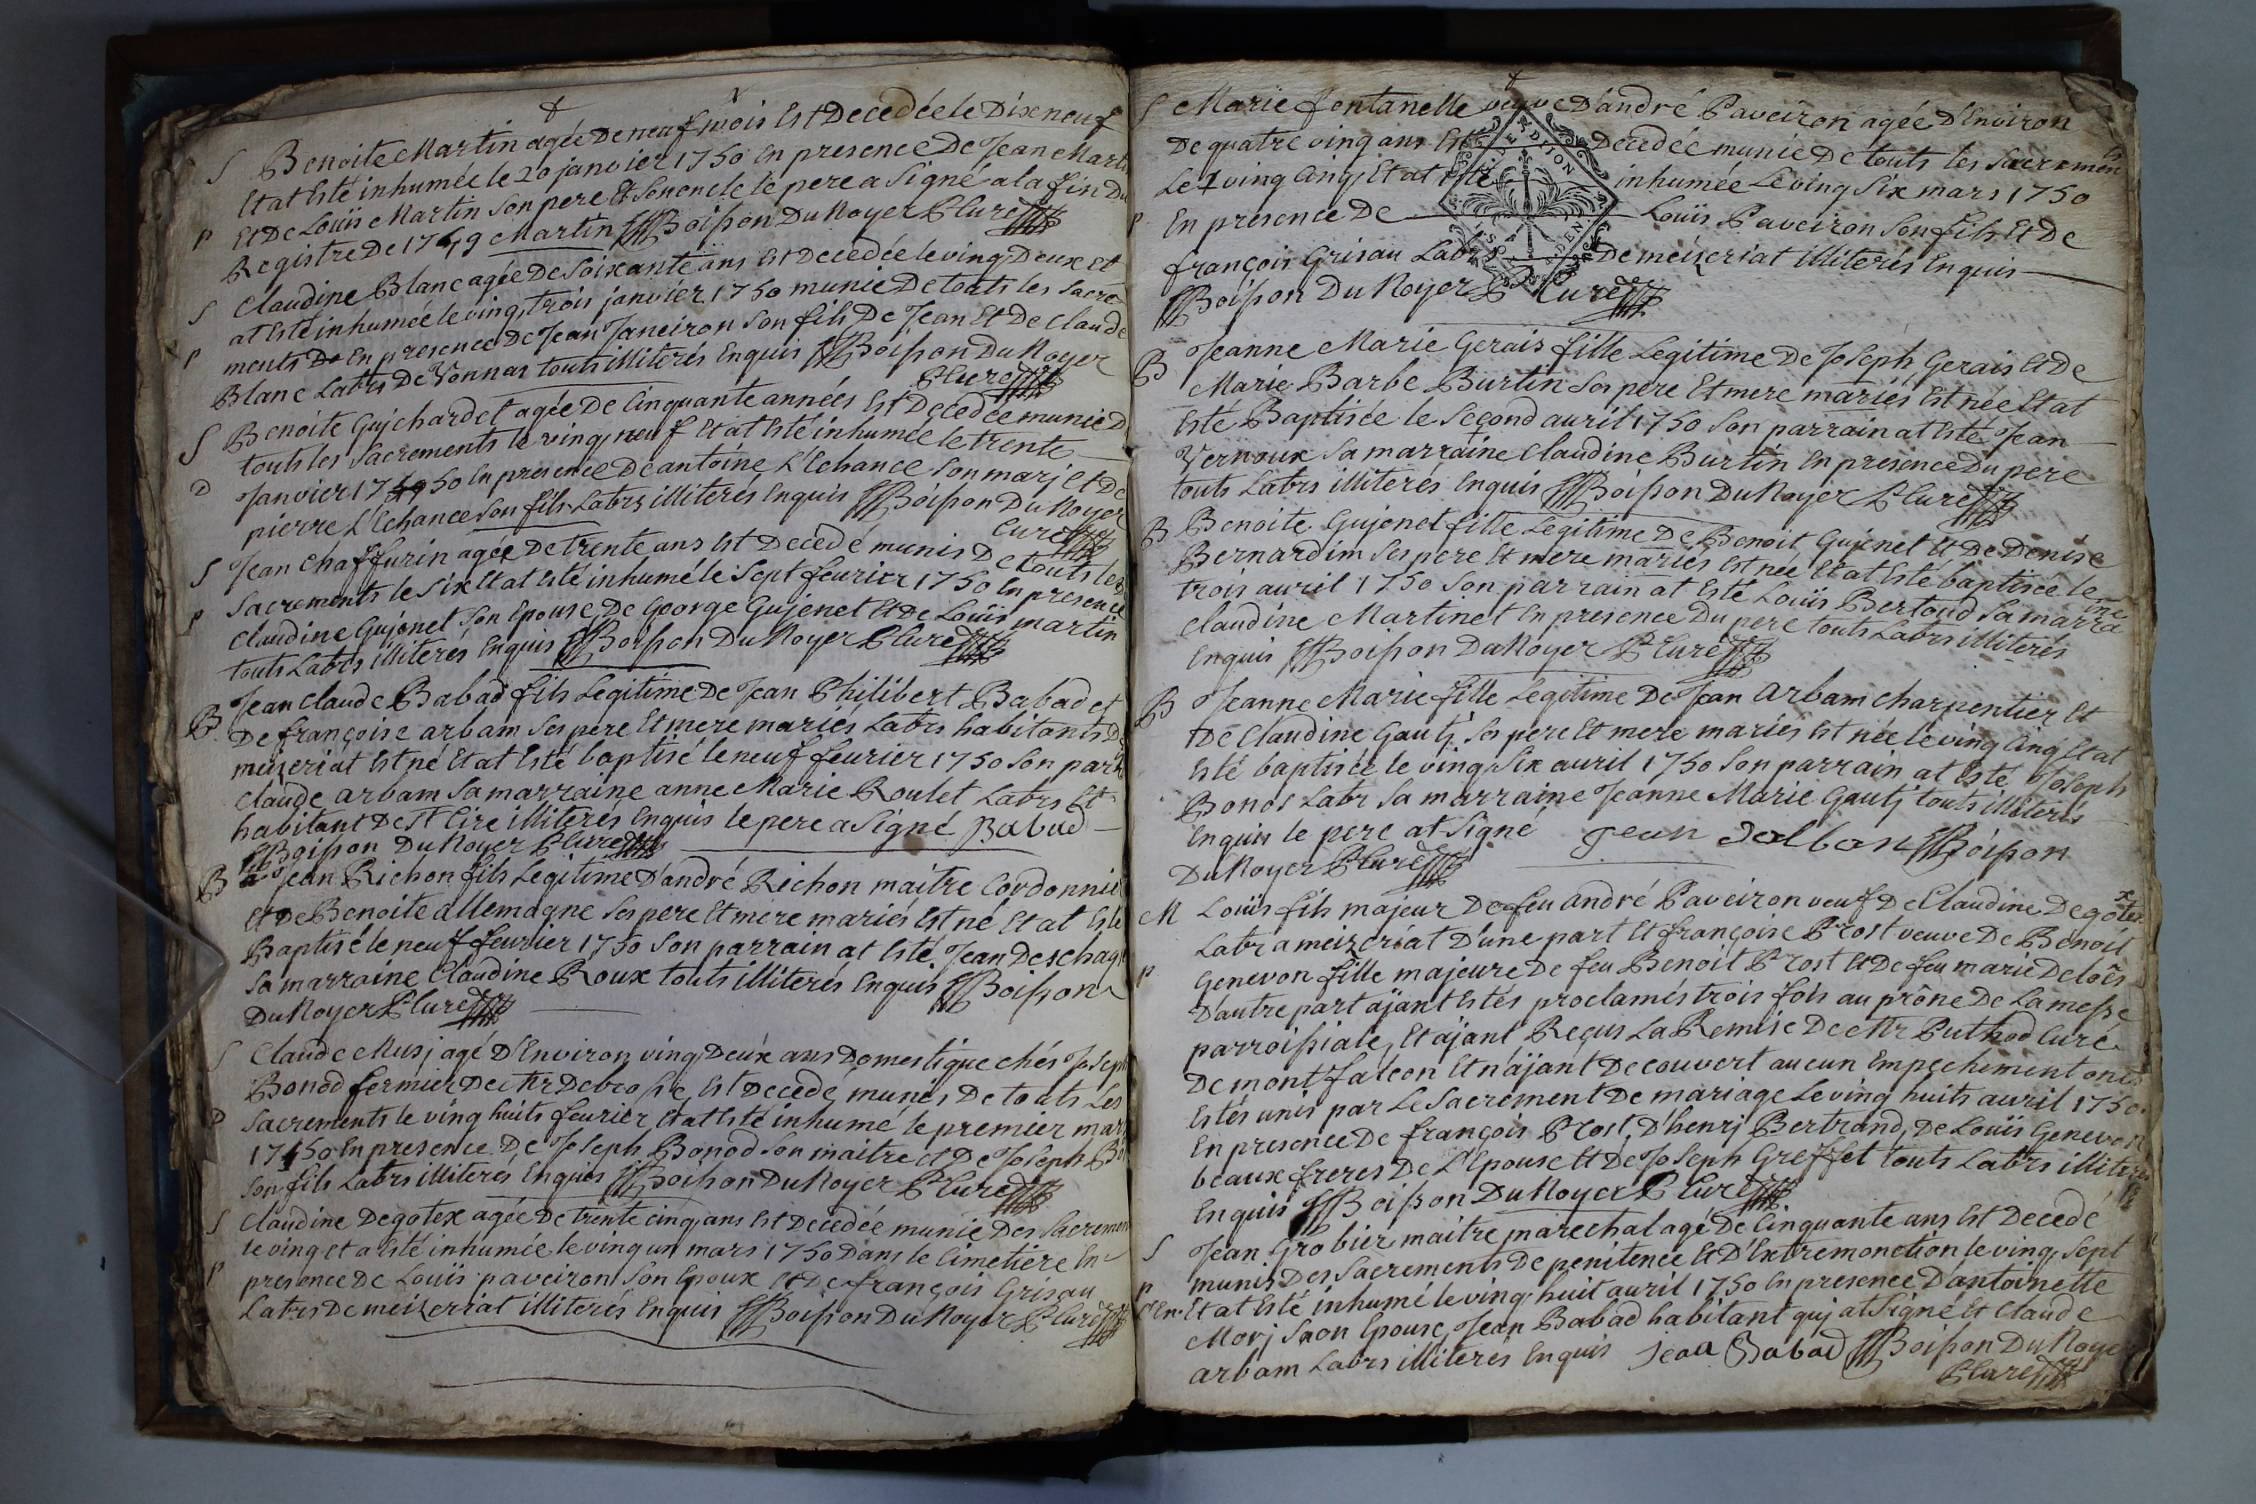 S Benoite Martin agée De neuf mois Est Decedée le Dixneuf
Et at Esté inhumée le 20 janvier 1750 En presence De Jean Marti
P Et De Loüis Martin son pere Et son oncle le pere a signé a la fin Du
Registre De 1749 Martin Boisson Du Noyer P Curé
S Claudine Blanc agée De soixante ans Est Decedée le ving Deux et
at Esté inhumée le ving trois janvier 1750 munie De touts les sacre-
P ments En presence De Jean Janeiron son fils De Jean Et De Claude
Blanc Labrs De Vonnas touts illiterés Enquis Boisson Du Noyer
P Curé
S Benoite Gujchardet agée De Cinquante années Est Decedée munie D
touts les sacrements le ving neuf Et at Esté inhumée le trente
P Janvier 1750 En presence De antoine L'Echance son marj et De
pierre L'Echance son fils Labrs illiterés Enquis Boisson Du Noyer
Curé
S Jean Chaffurin agée De trente ans Est Decedé munis De touts les
Sacrements le six Et at Esté inhumé le sept feurier 1750 En presence
P Claudine Gujenet son Epouse, De George Gujenet Et De Loüis martin
touts Labrs illiterés Enquis Boisson Du Noyer P Curé
Jean Claude Babad fils Legitime De Jean Philibert Babad et
B De françoise arbam ses pere Et mere mariés Labrs habitants D
meizeriat Est né Et at Esté baptisé le neuf feurier 1750 son parr
Claude arbam sa marraine anne Marie Roulet Labrs Et
habitant De St Cire illiterés Enquis le pere a signé Babad
Boisson Du Noyer P Curé
B Jean Richon fils Legitime D'andré Richon maitre Cordonnie
Et De Benoite allemagne ses pere Et mere mariés Est né Et at Esté
Baptisé le neuf feurier 1750 son parrain at Esté Jean Deschag
sa marraine Claudine Roux touts illiterés Enquis Boisson
Du Noyer P Curé
S Claude Musj agé D'Environ ving Deux ans Domestique chés Joseph
Bonod fermier De Mr Est Decedé munis De touts Les
P Sacrements le ving huits feurier, Et at Esté inhumé le premier mars
1750 En presence De Joseph Bonod son maitre et De Joseph Bo
son fils Labrs illiterés Enquis Boisson Du Noyer P Curé
S Claudine Degotex agée De trente cinq ans Est Decedée munie Des Sacremen
le ving et a Esté inhumée le ving un mars 1750 Dans le Cimetiere En
P presence De Loüis paveiron son Epoux et De françois Grisau
Labrs De meizeriat illiterés Enquis Boisson Du Noyer P Curé
S Marie fontanelle veuve D'andré Paveiron agée D'Environ
De quatre ving ans Est Decedée munie De touts les sacremen
ts
Le ving Cinq Et at Esté inhumée Le ving six mars 1750
P En presence De Loüis Paveiron son fils Et De
françois Grisau Labrs De meizeriat illiterés Enquis
Boisson Du Noyer P Curé
Jeanne Marie Gerais fille Legitime De Joseph Gerais Et De
B Marie Barbe Burtin ses pere Et mere mariés Est née Et at
Esté Baptisée le second auril 1750 son parrain at Esté Jean
Vernoux sa marraine Claudine Burtin En presence Du pere
touts Labrs illiterés Enquis Boisson Du Noyer P Curé
B Benoite Gujenet fille Legitime De Benoit Gujenet Et De Denise
Bernardim ses pere Et mere mariés Est née Et at Esté baptisée le
trois auril 1750 son parrain at Esté Loüis Bertoud sa marra
ine
Claudine Martinet En presence Du pere touts Labrs illiterés
Enquis Boisson Du Noyer P Curé
B Jeanne Marie fille Legitime De Jean arbam charpentier Et
De Claudine Gautj ses pere Et mere mariés Est née le ving Cinq Et at
Esté baptisée le ving six auril 1750 son parrain at Esté Joseph
Bonod Labr sa marraine Jeanne Marie Gautj touts illiterés
Enquis le pere at signé Jean dalban Boisson
Du Noyer P Curé
M Loüis fils majeur De feu andré Paveiron veuf De Claudine Degotex
Labr a meizeriat D'une part Et françoise Prost veuve De Benoit
P Genevon fille majeure De feu Benoit Prost Et De feu marie
D'autre part ajant Estés proclamés trois fois au prône De La messe
parroissiale, Et ajant Reçus La Remise De Mr Puthod Curé
De montfalcon Et n'ajant Decouvert aucun Empechement ont
Estés unis par Le Sacrement De mariage Le ving huits auril 1750
En presence De françois Prost, D'henrj Bertrand, De Loüis Genevon
beaux freres De L'Epouse Et De Joseph Greffet touts Labrs illiterés
Enquis Boisson Du Noyer P Curé
S Jean Grobier maitre marechal agé De Cinquante ans Est Decedé
P munis Des Sacrements De penitence Et D'Extremonction le ving sept
Et at Esté inhumé le ving huit auril 1750 En presence D'antoinette
Morj son Epouse, Jean Babad habitant quj at signé Et Claude
arbam Labrs illiterés Enquis Jean Babad Boisson Du Noye
P Curé